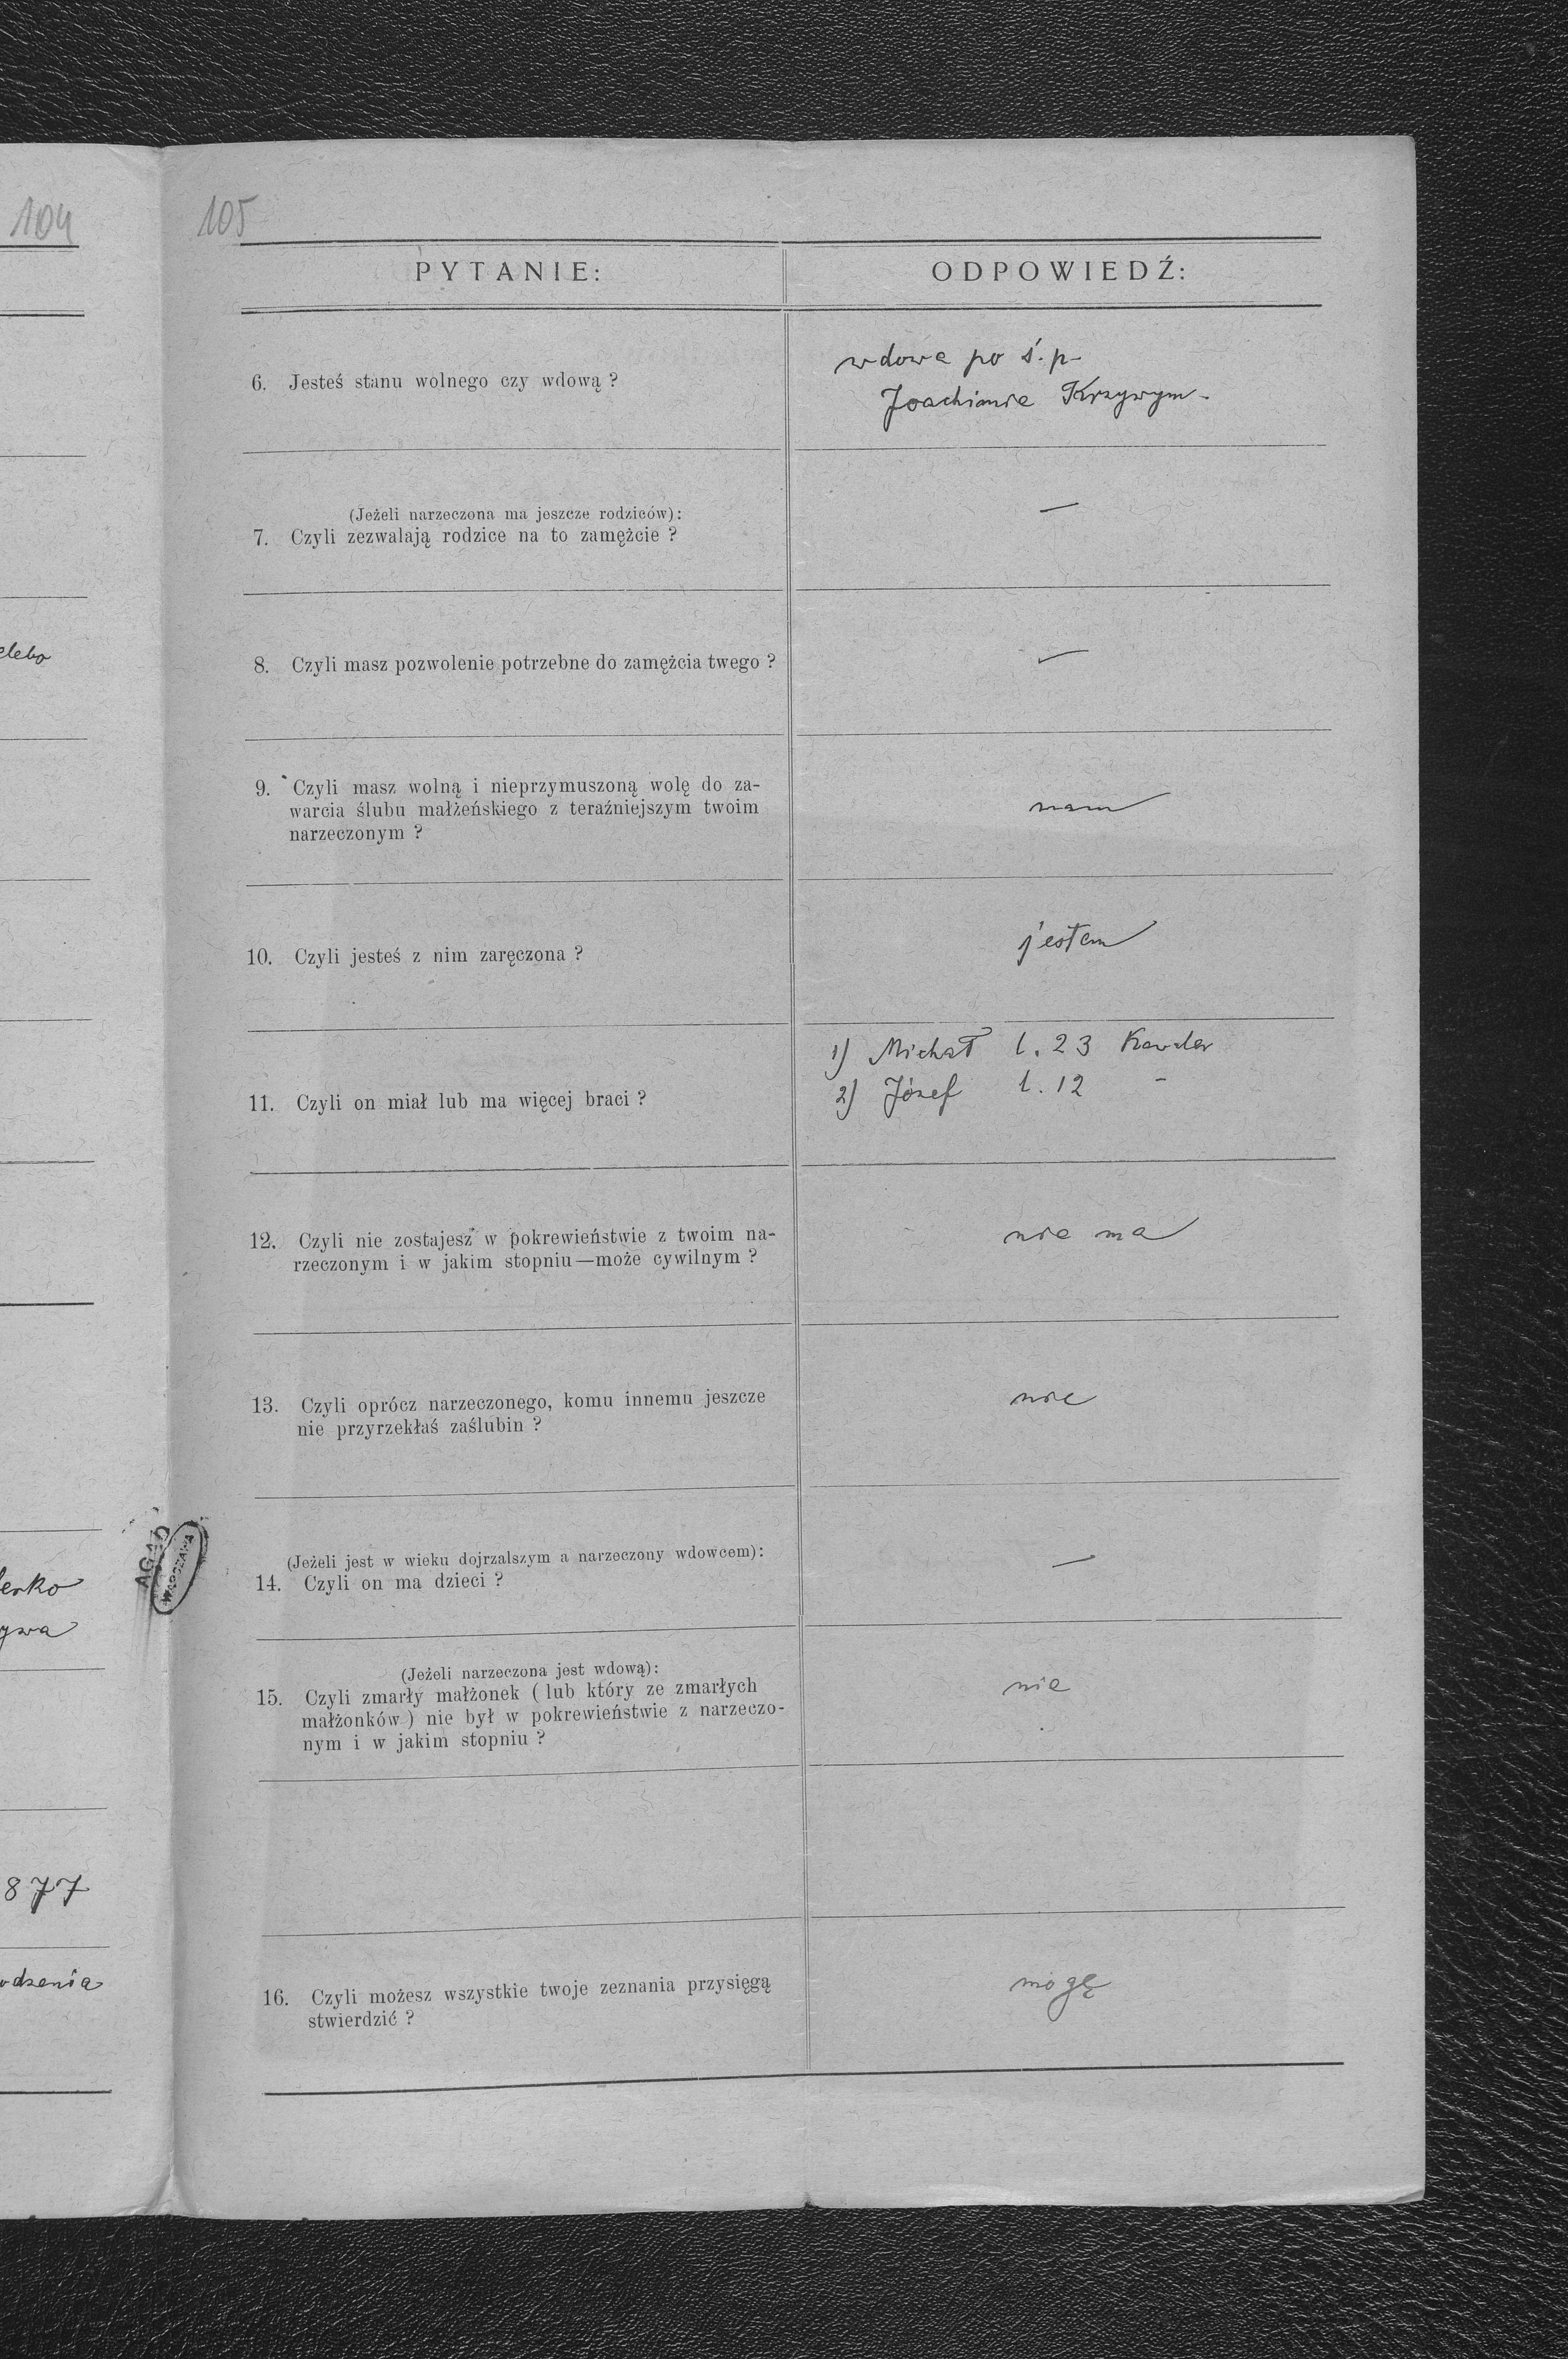 104
105
PYTANIE:
ODPOWIEDŹ:
6. Jesteś stanu wolnego czy wdową ?
wdowa po ś. p.
Joachimie Krzywym.
(Jeżeli narzeczona ma jeszcze rodziców):
7. Czyli zezwalają rodzice na to zamężcie ?
—
8. Czyli masz pozwolenie potrzebne do zamężcia twego ?
—
9. Czyli masz wolną i nieprzymuszoną wolę do za-
warcia ślubu małżeńskiego z teraźniejszym twoim
narzeczonym ?
mam
10. Czyli jesteś z nim zaręczona ?
jestem
11. Czyli on miał lub ma więcej braci ?
1) Michał l. 23 Kawaler
2) Józef l. 12 -
12. Czyli nie zostajesz w pokrewieństwie z twoim na-
rzeczonym i w jakim stopniu—może cywilnym ?
nie ma
13. Czyli oprócz narzeczonego, komu innemu jeszcze
nie przyrzekłaś zaślubin ?
nie
(Jeżeli jest w wieku dojrzalszym a narzeczony wdowcem):
14. Czyli on ma dzieci ?
—
(Jeżeli narzeczona jest wdową):
15. Czyli zmarły małżonek ( lub który ze zmarłych
małżonków ) nie był w pokrewieństwie z narzeczo-
nym i w jakim stopniu ?
nie
16. Czyli możesz wszystkie twoje zeznania przysięgą
stwierdzić ?
mogę
erko
ywa
877
odzenia
AGAD
WARSZAWA